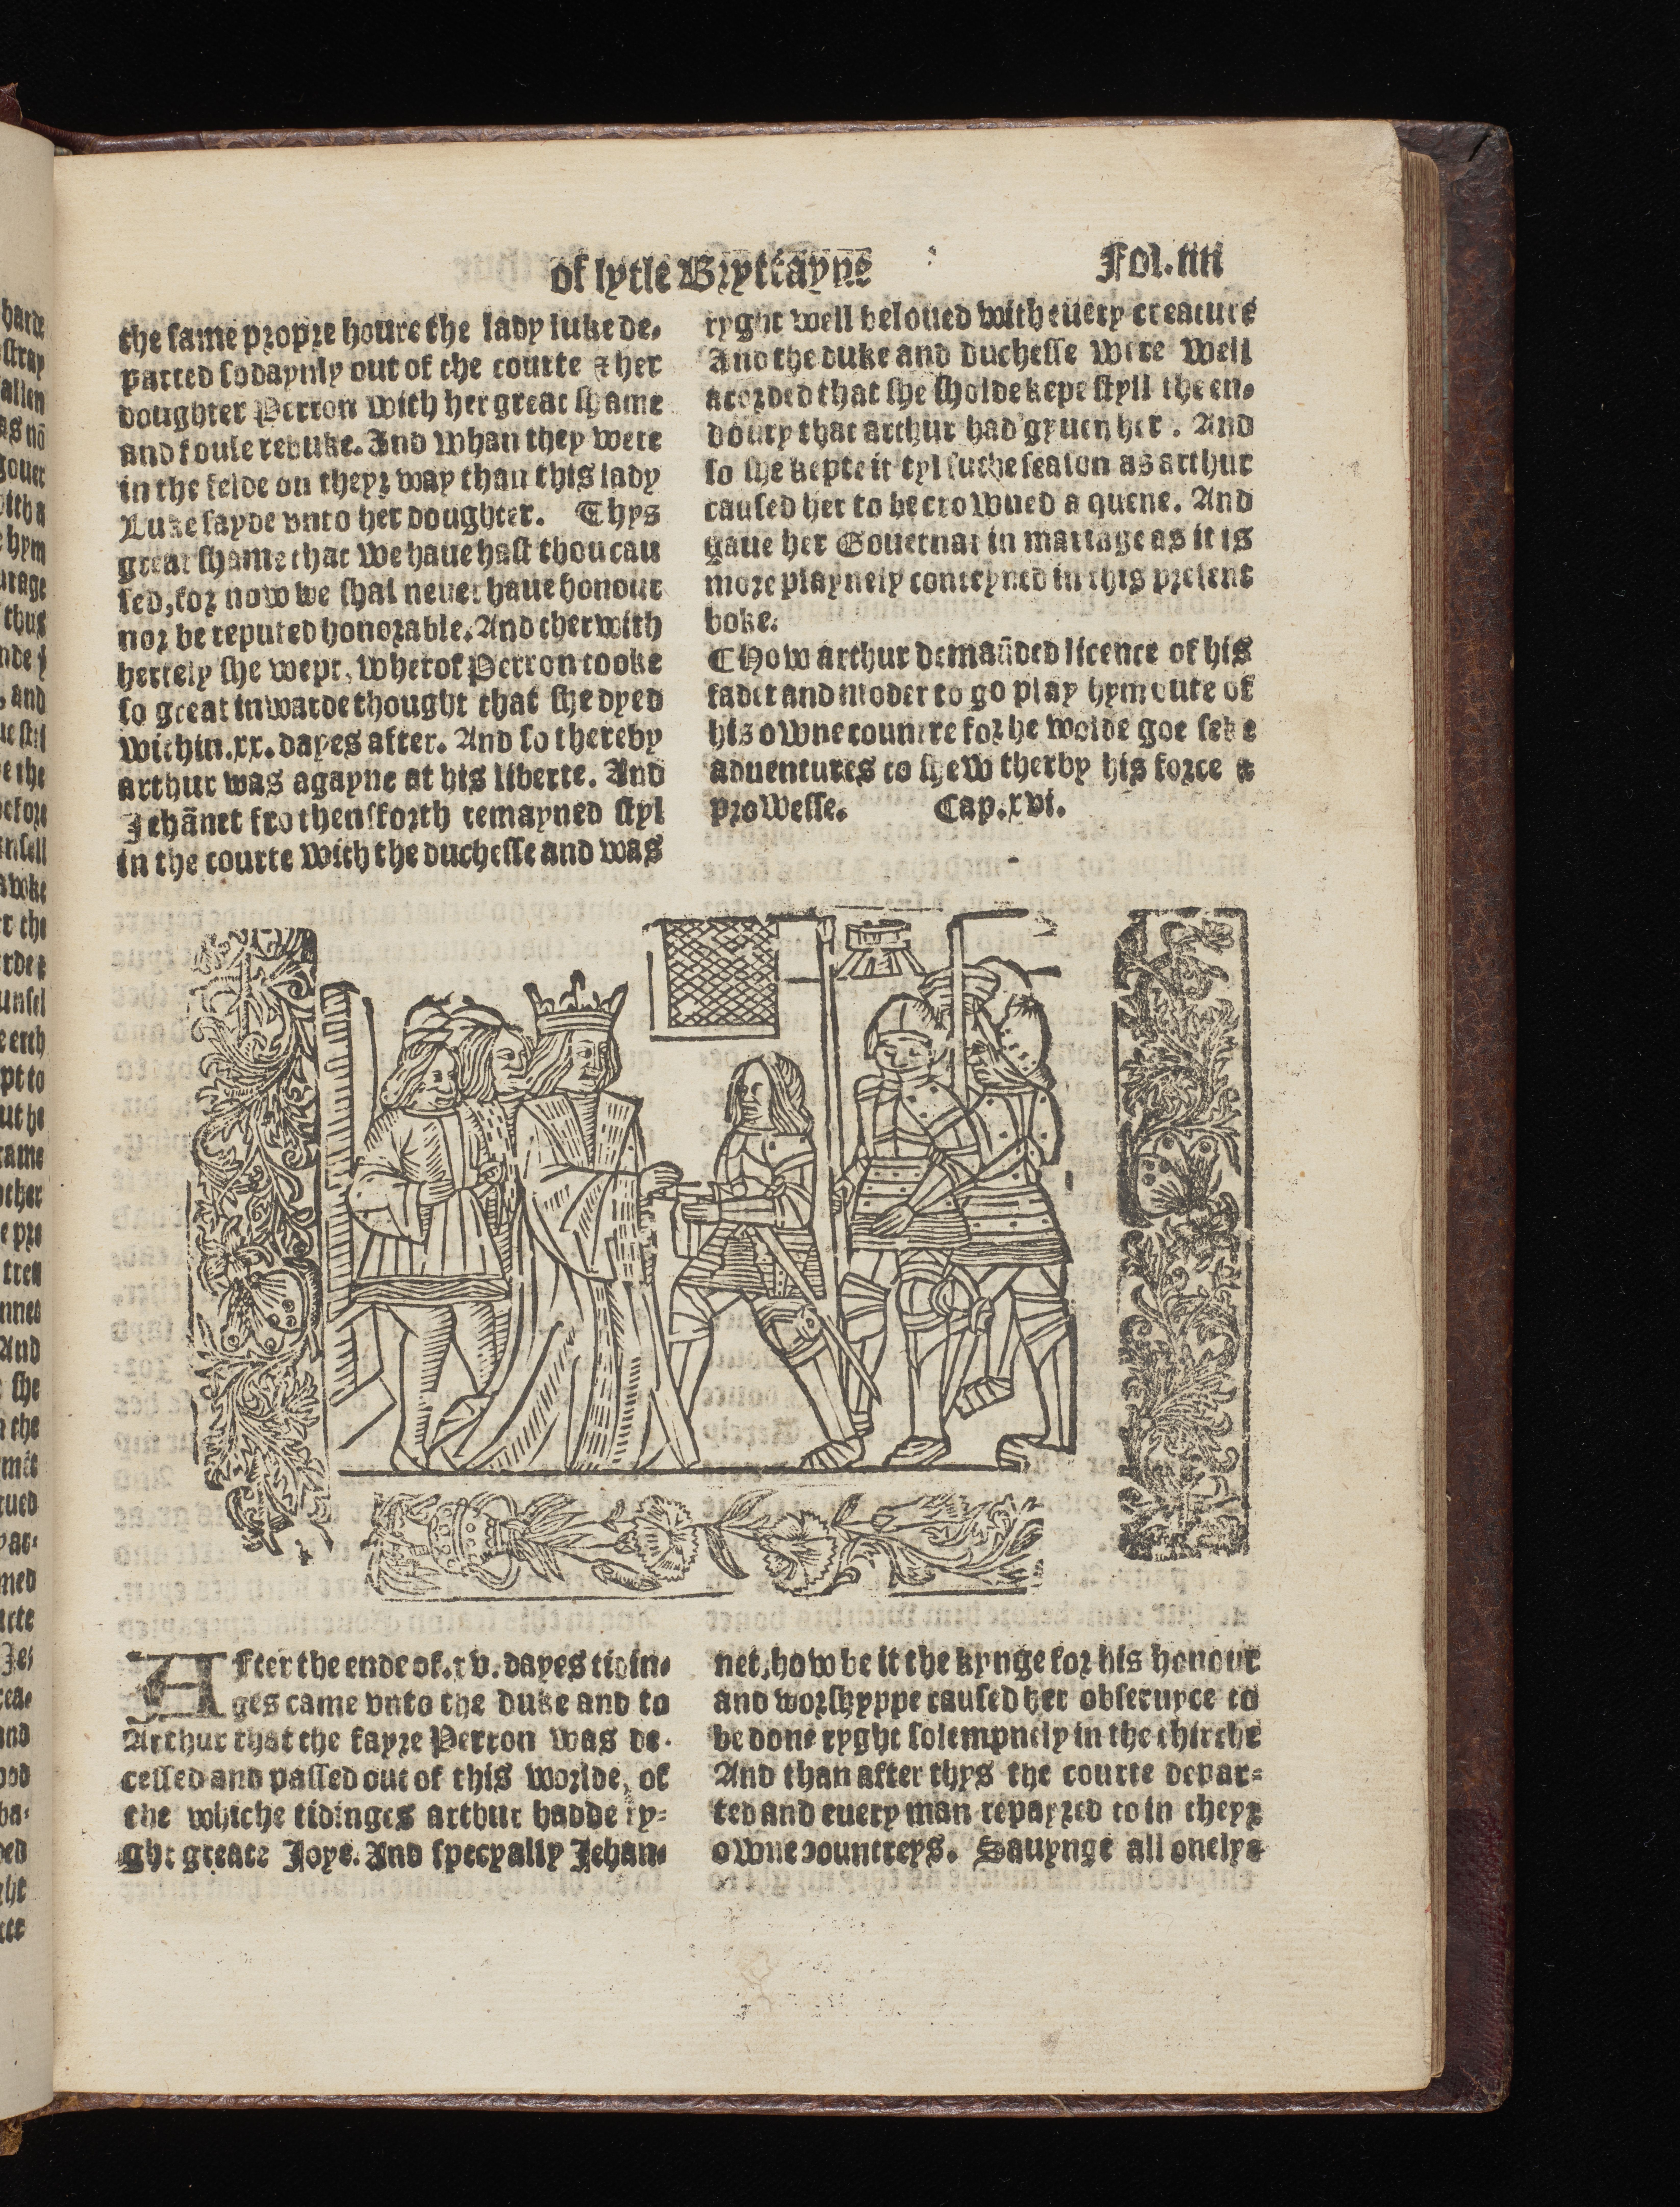 of lytle Bryttayne
Fol.iiii
the same propre houre the lady luke de-
parted sodaynly out of the courte & her
doughter Perron with her great shame
and foule rebuke. And whan they were
in the felde on theyr way than this lady
Luke sayde vnto her doughter. Thys
great shame that we haue hast thou cau
sed, for now we shal neuer haue honour
nor be reputed honorable. And therwith
hertely she wept, wherof Perron tooke
so great inwarde thought that she dyed
within.xx. dayes after. And so thereby
arthur was agayne at his liberte. And
Jehãnet fro thensforth remayned styl
in the courte with the duchesse and was
ryght well beloued with euery creature
And the duke and duchesse were well
acorded that she sholde kepe styll the en-
doury that arthur had gyuen her. And
so she kepte it tyl suche season as arthur
caused her to be crowned a quene. And
gaue her Gouernar in mariage as it is
more playnely conteyned in this present
boke.
CHow arthur demaũded licence of his
fader and moder to go play hym oute of
his owne countre for he wolde goe seke
aduentures to shew therby his force &
prowesse. Cap.xvi.
After the ende of.xv. dayes tidin-
ges came vnto the duke and to
Arthur that the fayre Perron was de-
cessed and passed out of this worlde, of
the whiche tidinges arthur hadde ry-
ght greate Joye. And specyally Jehan-
net, how be it the kynge for his honour
and worshyppe caused her obseruyce to
be done ryght solempnely in the chirche
And than after thys the courte depar-
ted and euery man repayred to in theyr
owne countreys. Sauynge all onelye